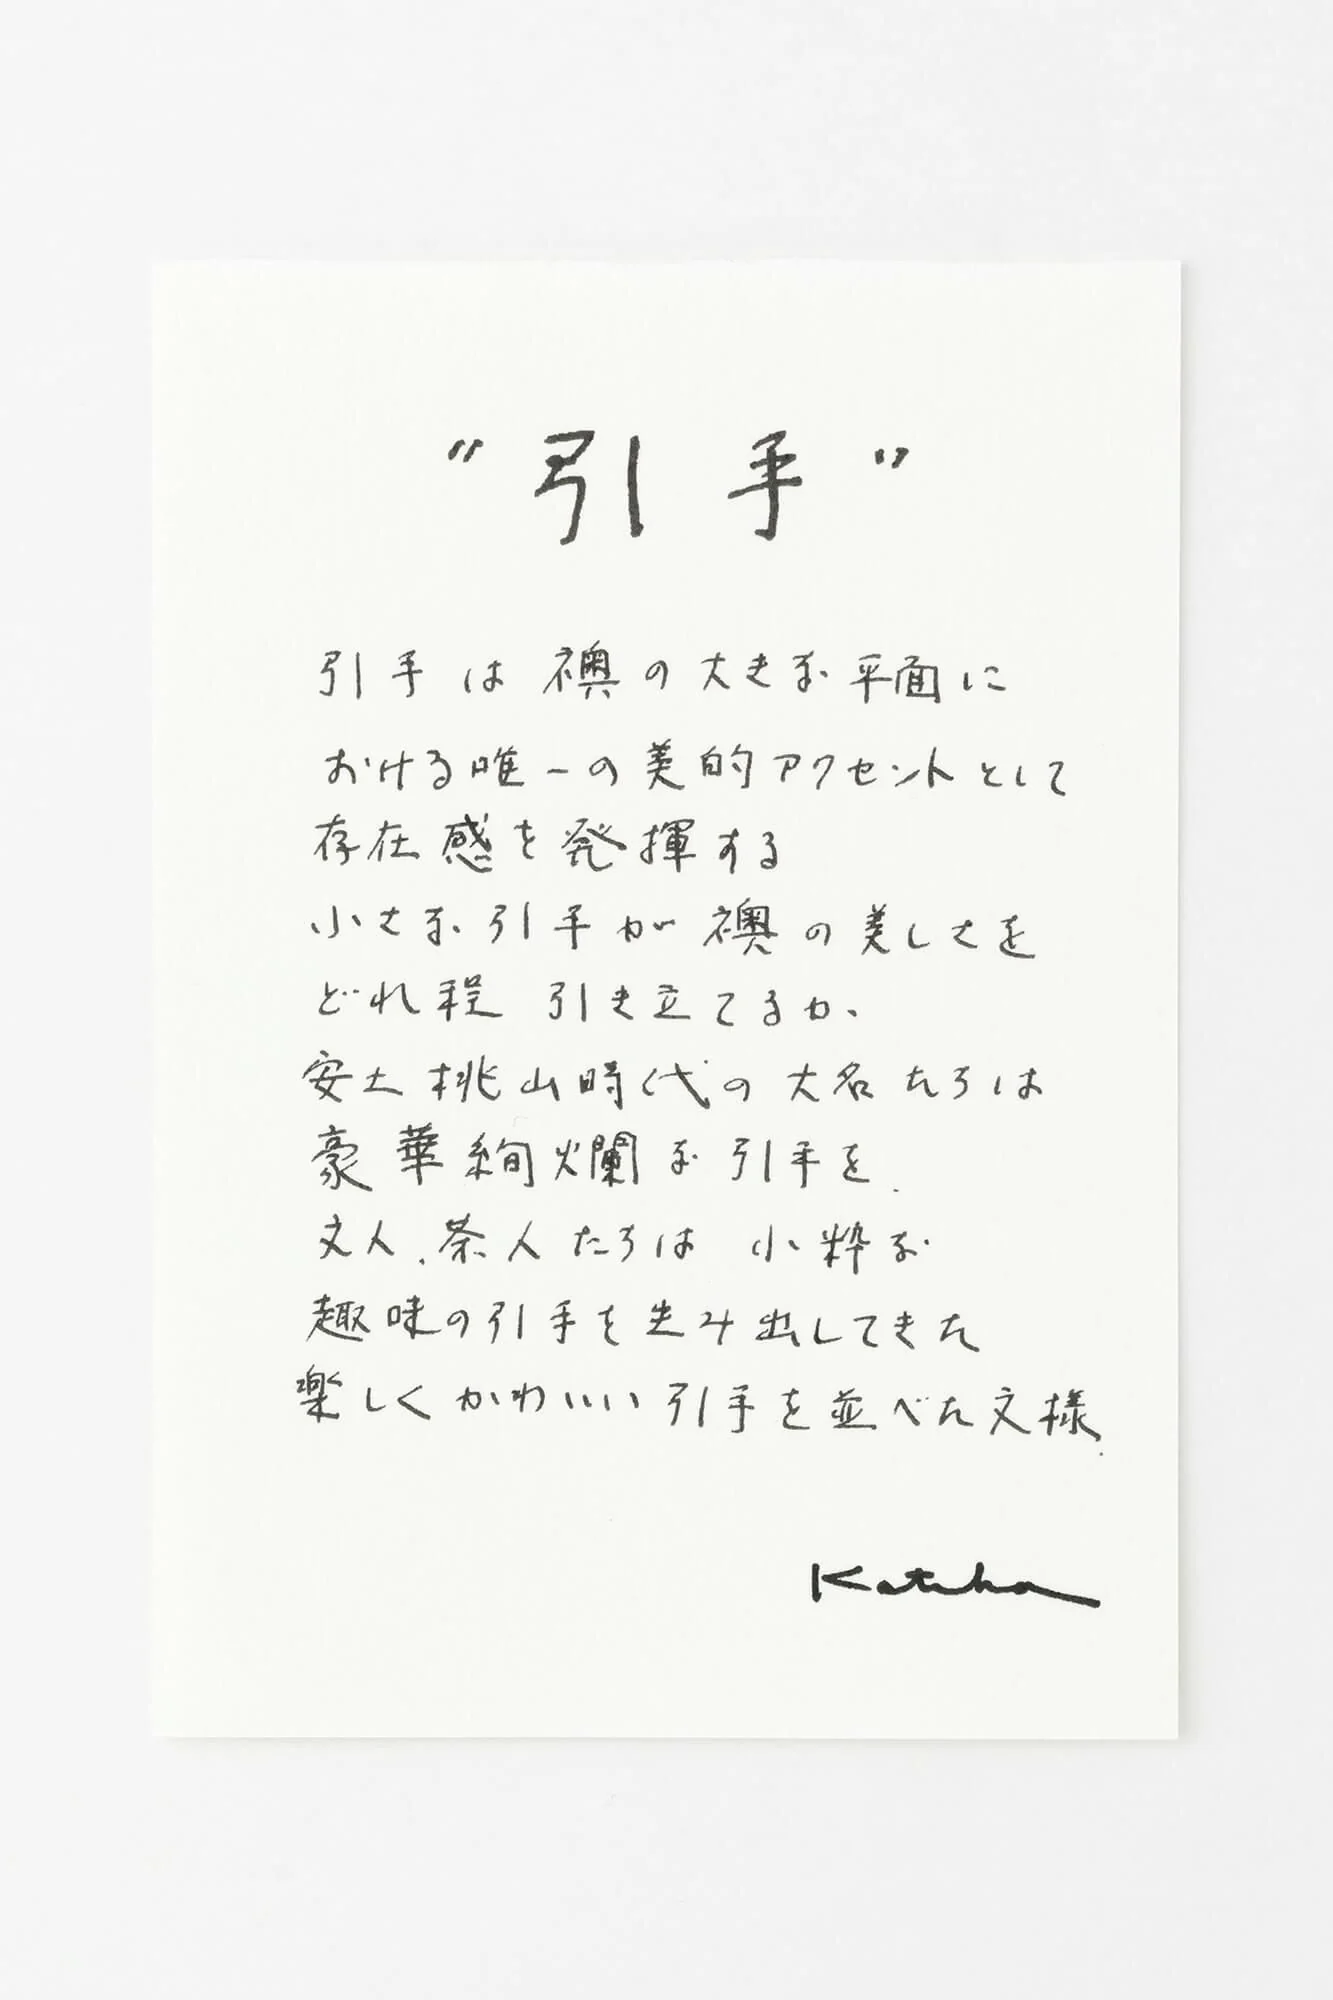 "引手"
引手は襖の大きな平面に
おける唯一の美的アクセントとして
存在感を発揮する
小さな引手が襖の美しさを
どれ程 引き立てるか、
安土桃山時代の大名たちは
豪華絢爛な引手を、
文人、茶人たちは 小粋な
趣味の引手を生み出してきた
楽しくかわいい引手を並べた文様、
Katsuha